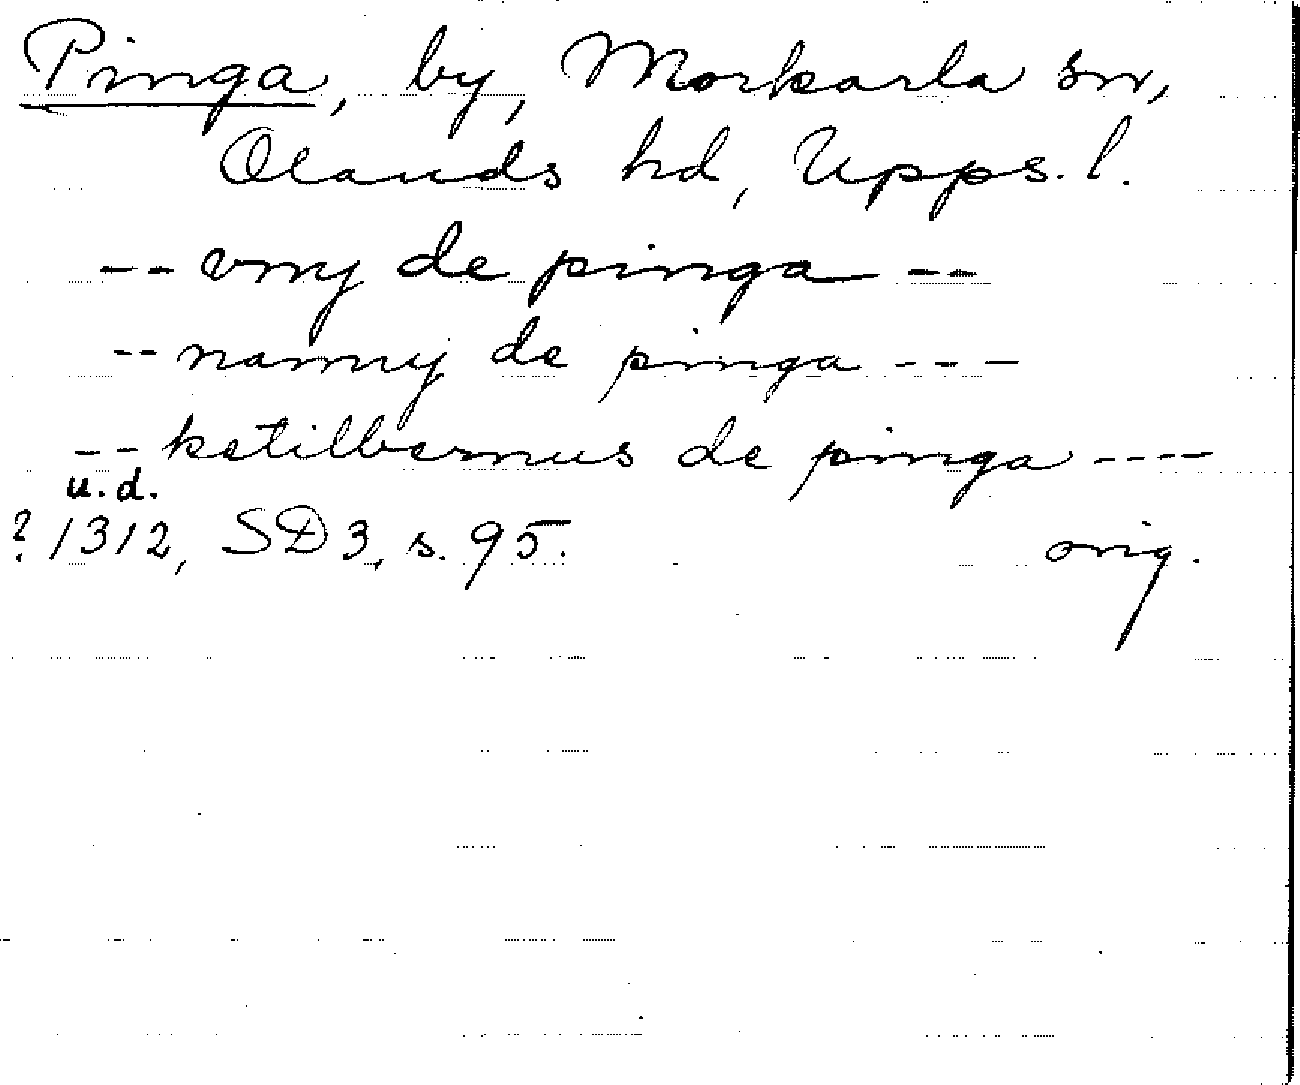 Pinga, by, Morkarla sn,
Olands hd, Upps. l.
-- vny de pinga --
-- nanny de pinga ---
-- ketilbernus de pinga ----
u.d.
? 1312, SD 3, s. 95. orig.